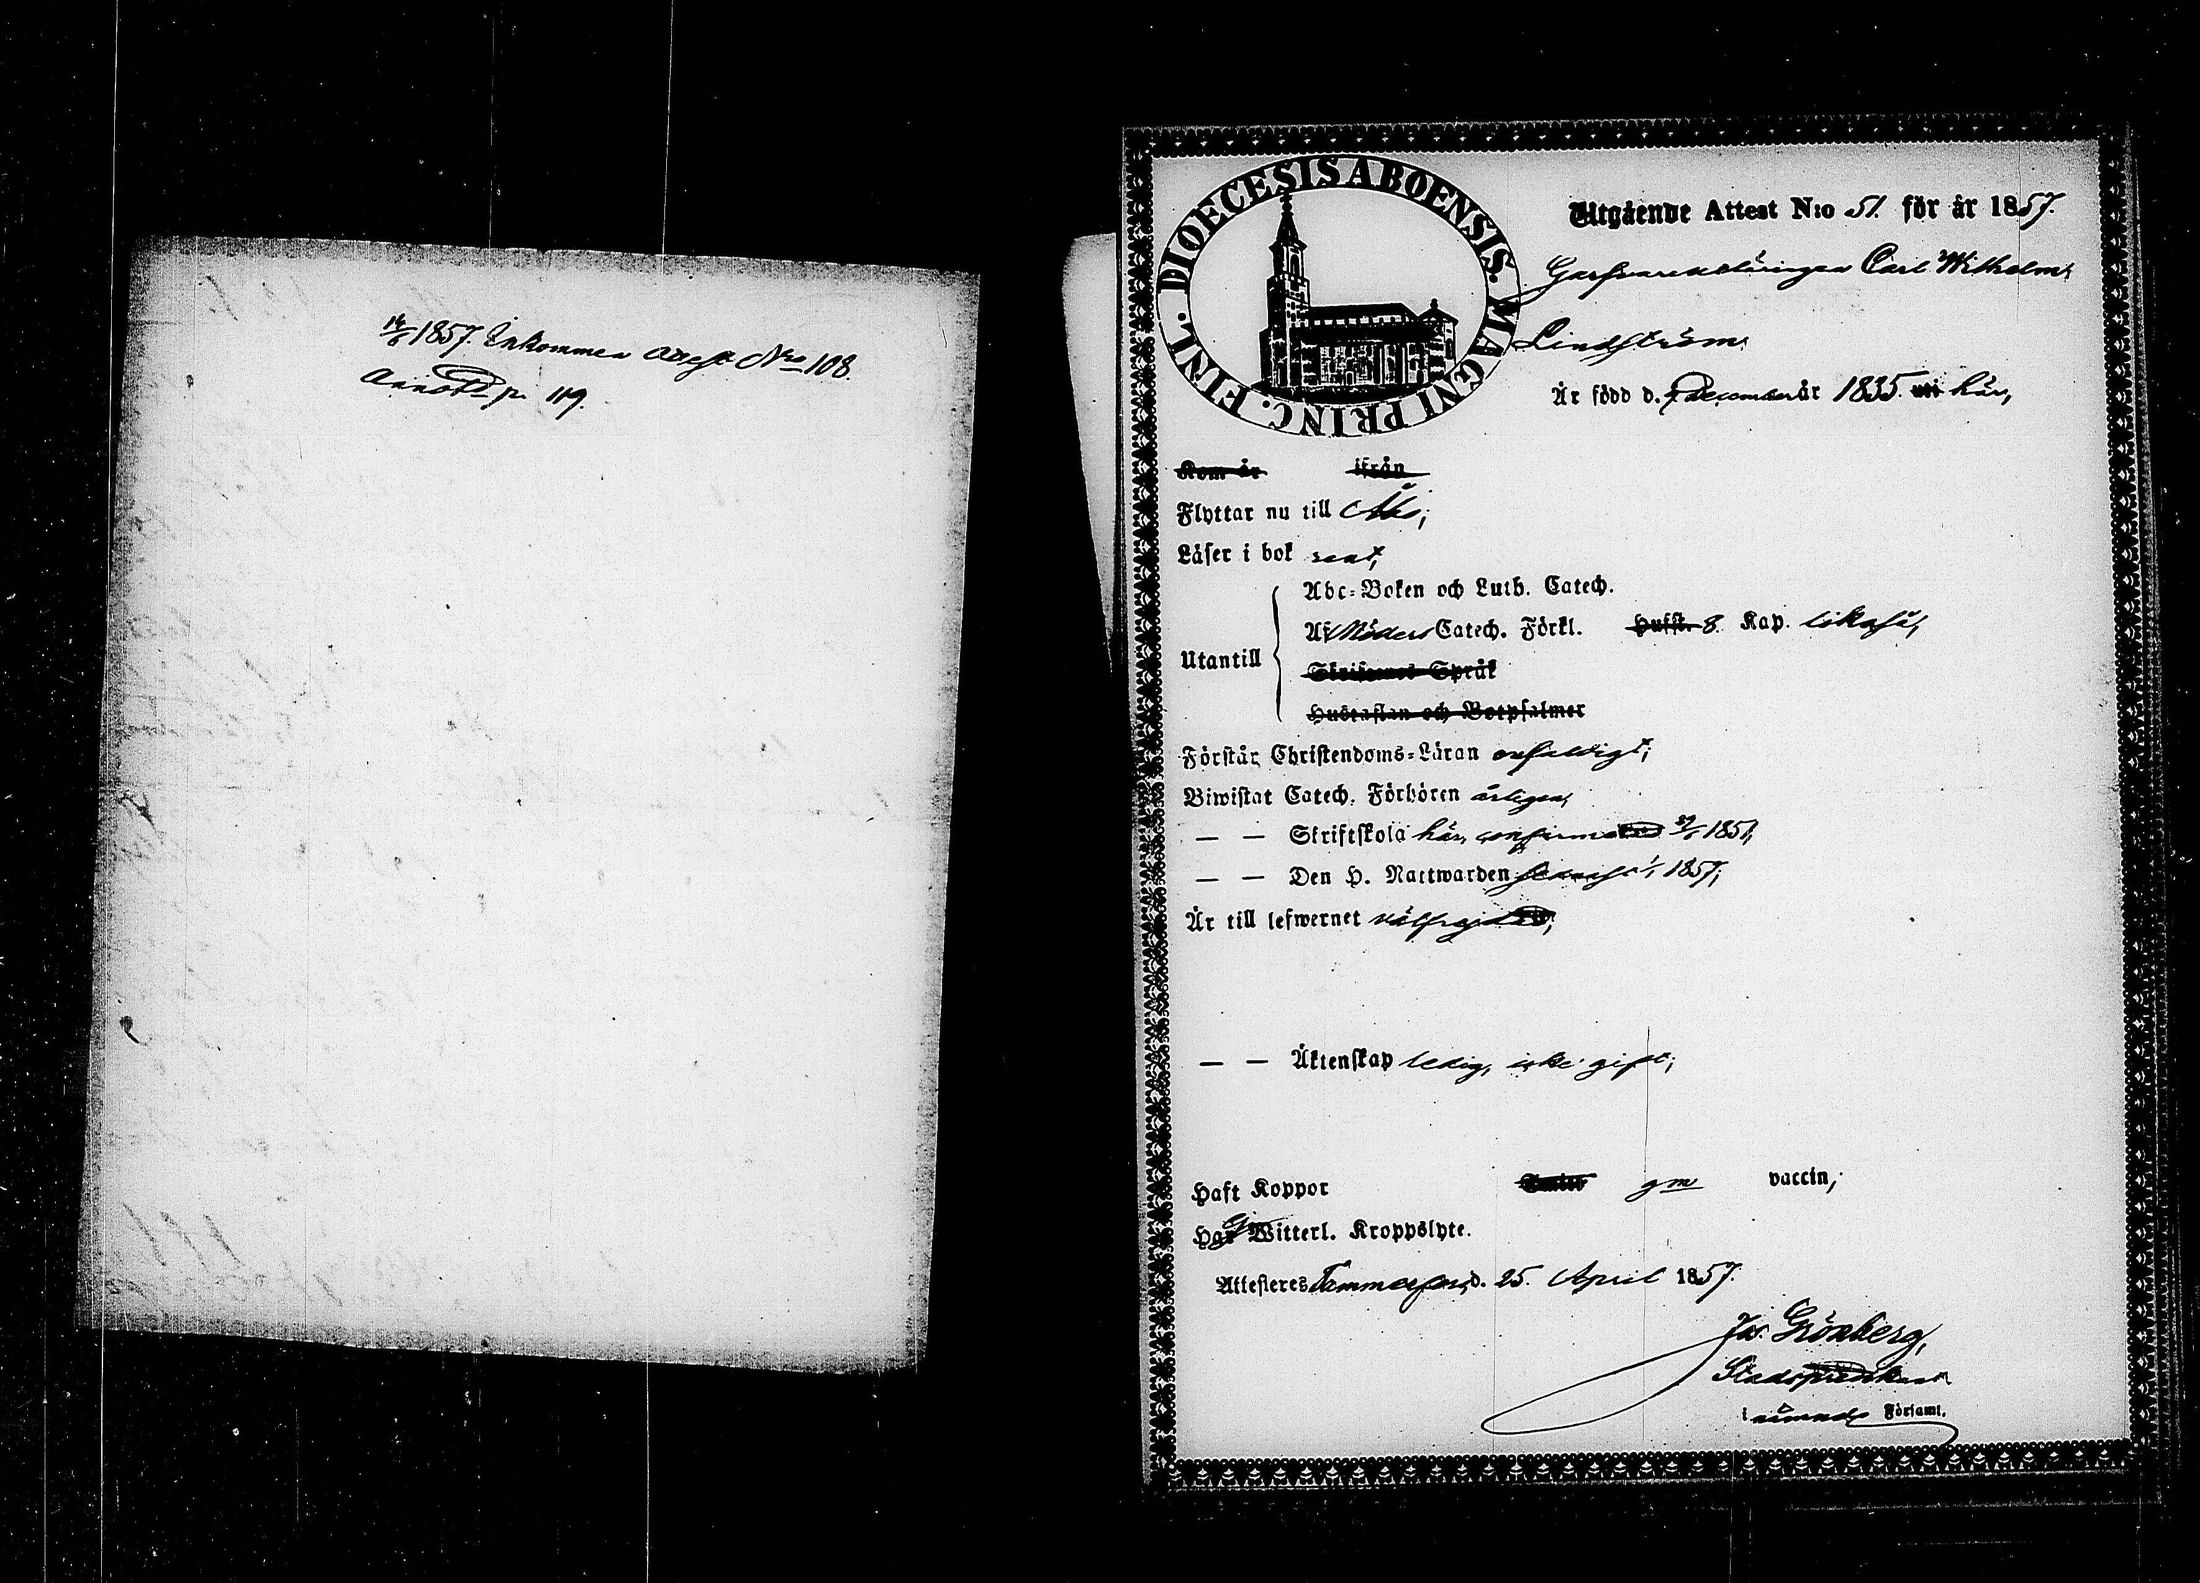 14/5 1857. Inkommen attest Nro 108.
Annoterd p. 119.
DIOECESIS ABOENSIS. MAGNI PRINC. FINL.
Utgående Attest N:o 51. för år 1857.
Carl Wilhelm
Lindström
Är född d. 7 December år 1835. uti här,
Kom år ifrån
Flyttar nu till Åbo;
Läser i bok rent,
Utantill
Abc-Boken och Luth. Catech.
Af Möllers Catech. Förkl. Hufst. 8. Kap. likaså,
Skriftenes Språk
Hustaflan och Botpsalmer
Förstår Christendoms-Läran enfaldigt;
Biwistat Catech. Förhören årligen,
— — Skriftskola här, confirmerad 1851,
— — Den H. Nattwarden 1857;
Är till lefwernet välfrejdad;
— — Äktenskap ledig, icke gift;
Haft Koppor Emitt gm vaccin,
Har Ej Witterl. Kroppslyte.
Attesteres Tammerfors, d. 25. April 1857.
Js. Grönberg,
Stadspredikant
i nämnde Församl.